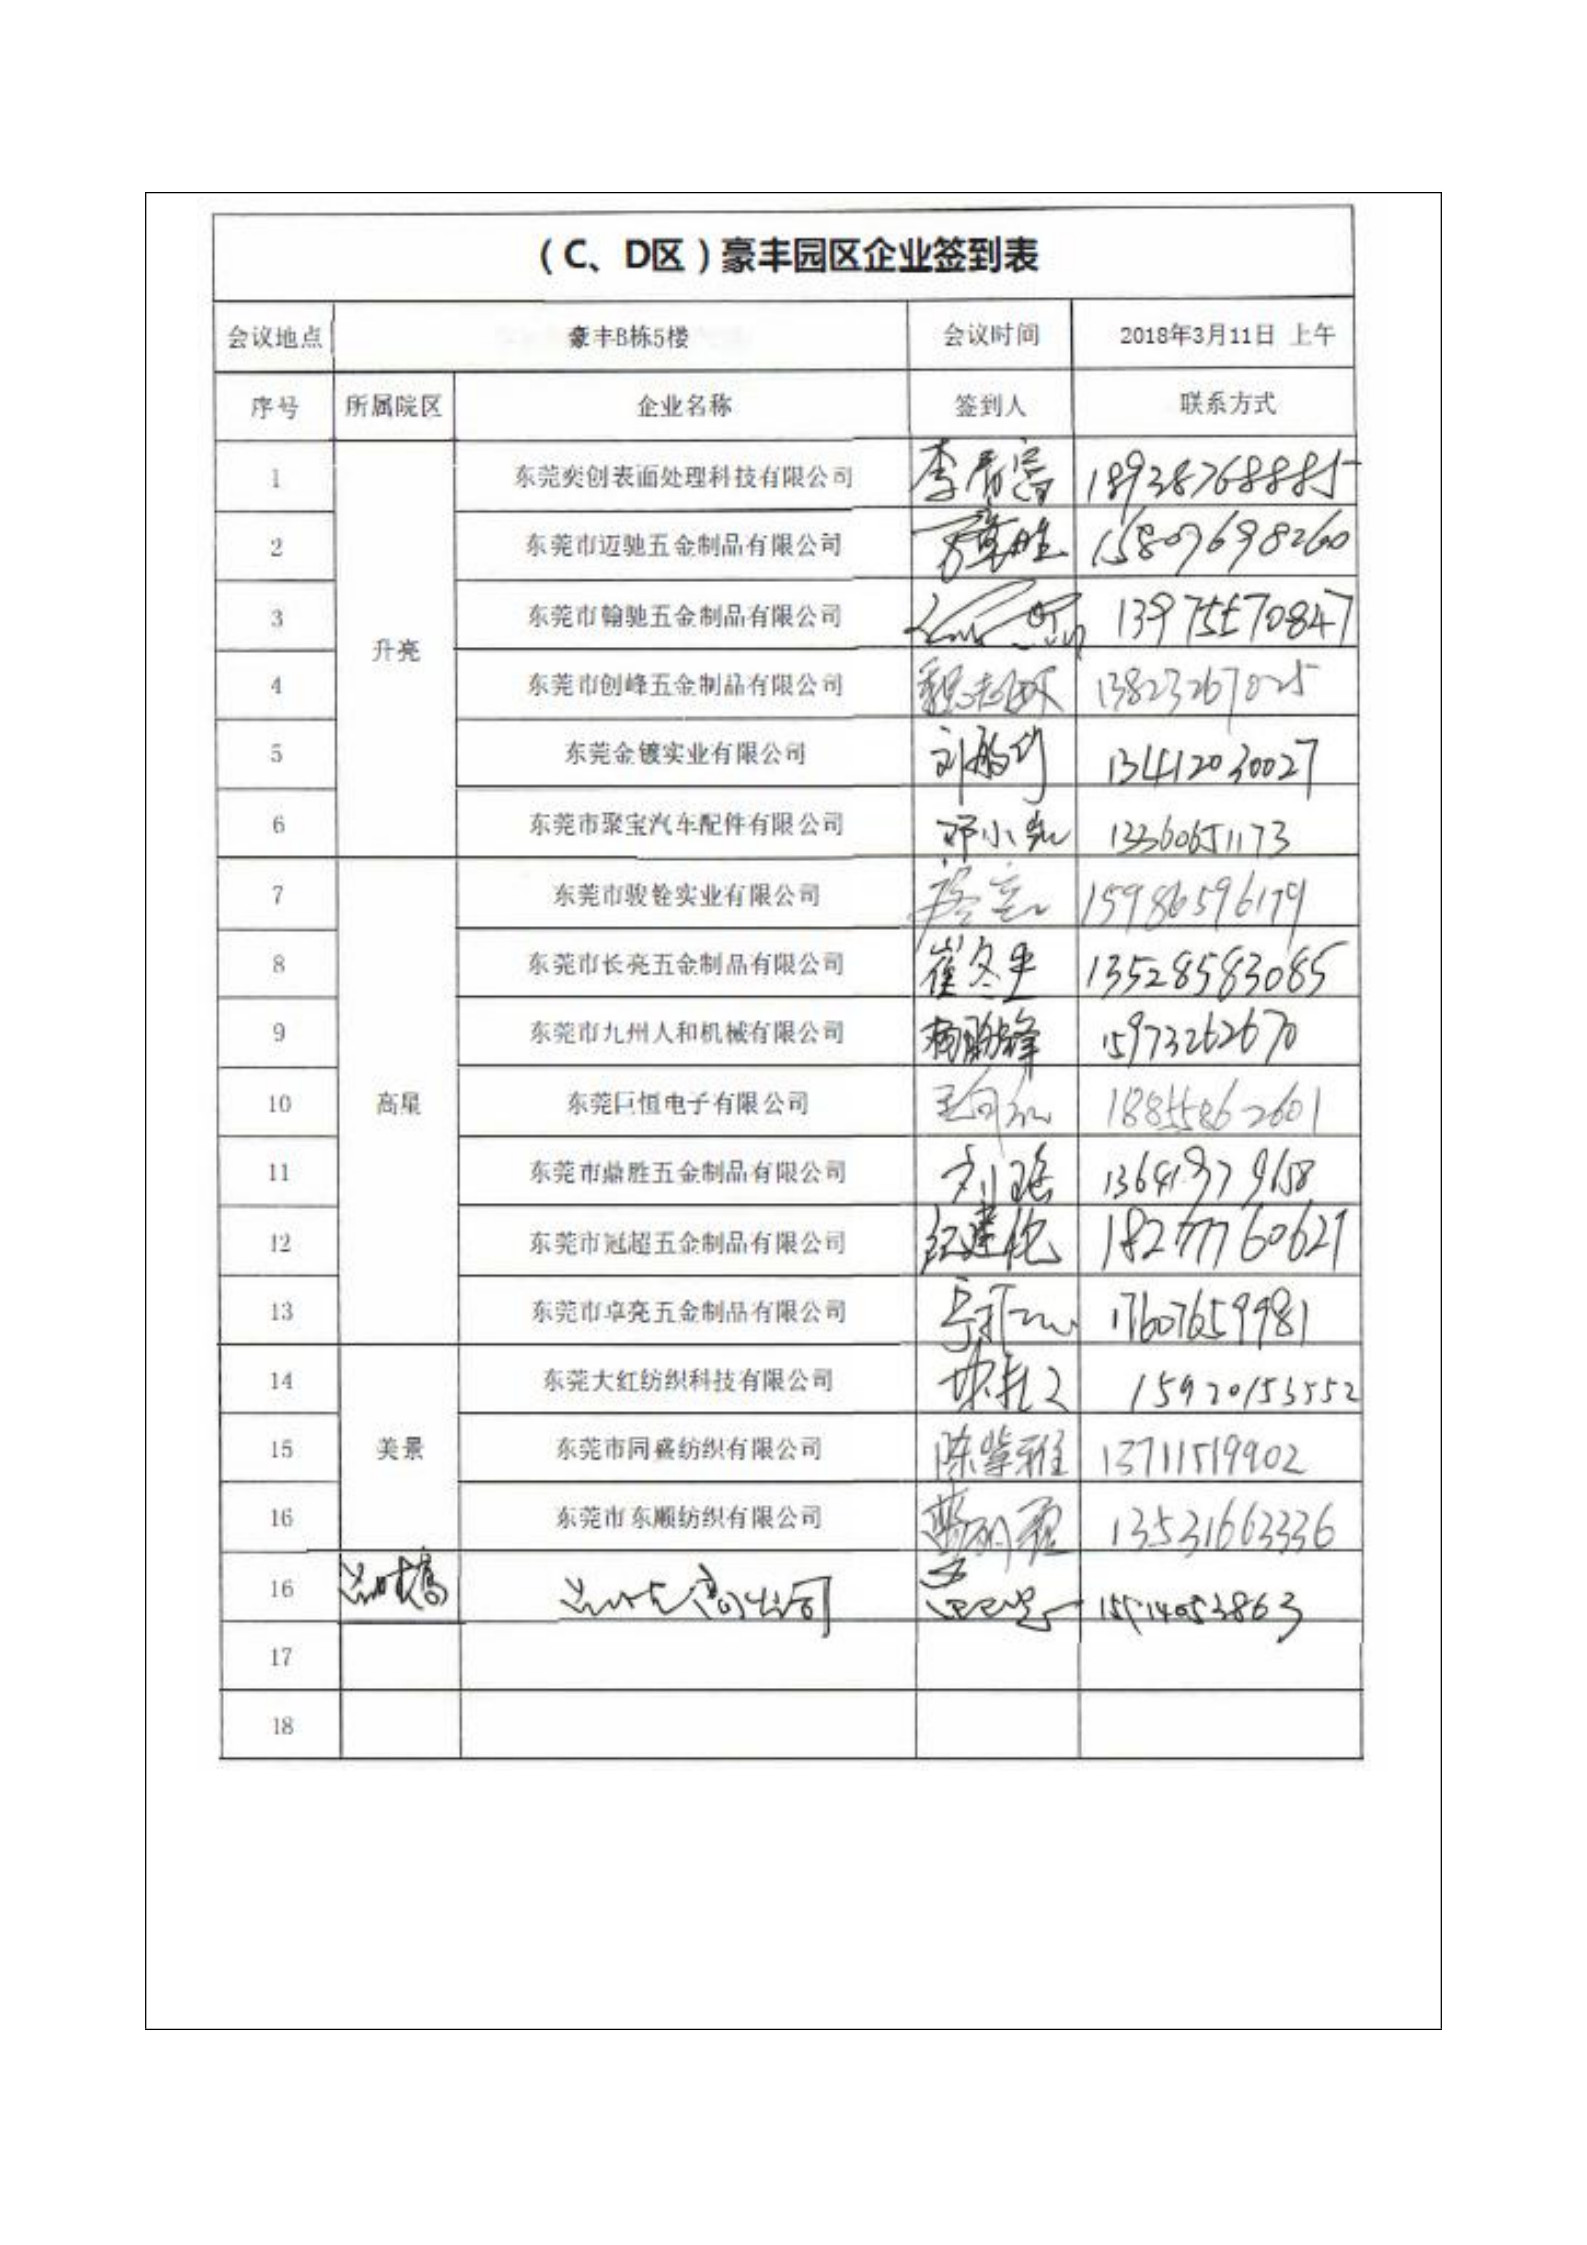 （C、D区）豪丰园区企业签到表
会议地点 豪丰B栋5楼 会议时间 2018年3月11日 上午
序号 所属院区 企业名称 签到人 联系方式
1 东莞奕创表面处理科技有限公司 李春富 18938768885
2 东莞市迈驰五金制品有限公司 15807698260
3 东莞市翰驰五金制品有限公司 13975570847
升亮
4 东莞市创峰五金制品有限公司 13823267025
5 东莞金镀实业有限公司 13412030027
6 东莞市聚宝汽车配件有限公司 邓小 13360651173
7 东莞市骏铨实业有限公司 15986596179
8 东莞市长亮五金制品有限公司 崔冬平 13528583085
9 东莞市九州人和机械有限公司 杨鹏锋 15973262670
10 高星 东莞巨恒电子有限公司 18855862601
11 东莞市鼎胜五金制品有限公司 刘瑶
12 东莞市冠超五金制品有限公司 纪建伦 18277760621
13 东莞市卓亮五金制品有限公司 17607659981
14 东莞大红纺织科技有限公司 15920153552
15 美景 东莞市同盛纺织有限公司 13711519902
16 东莞市东顺纺织有限公司 13531663336
16
17
18